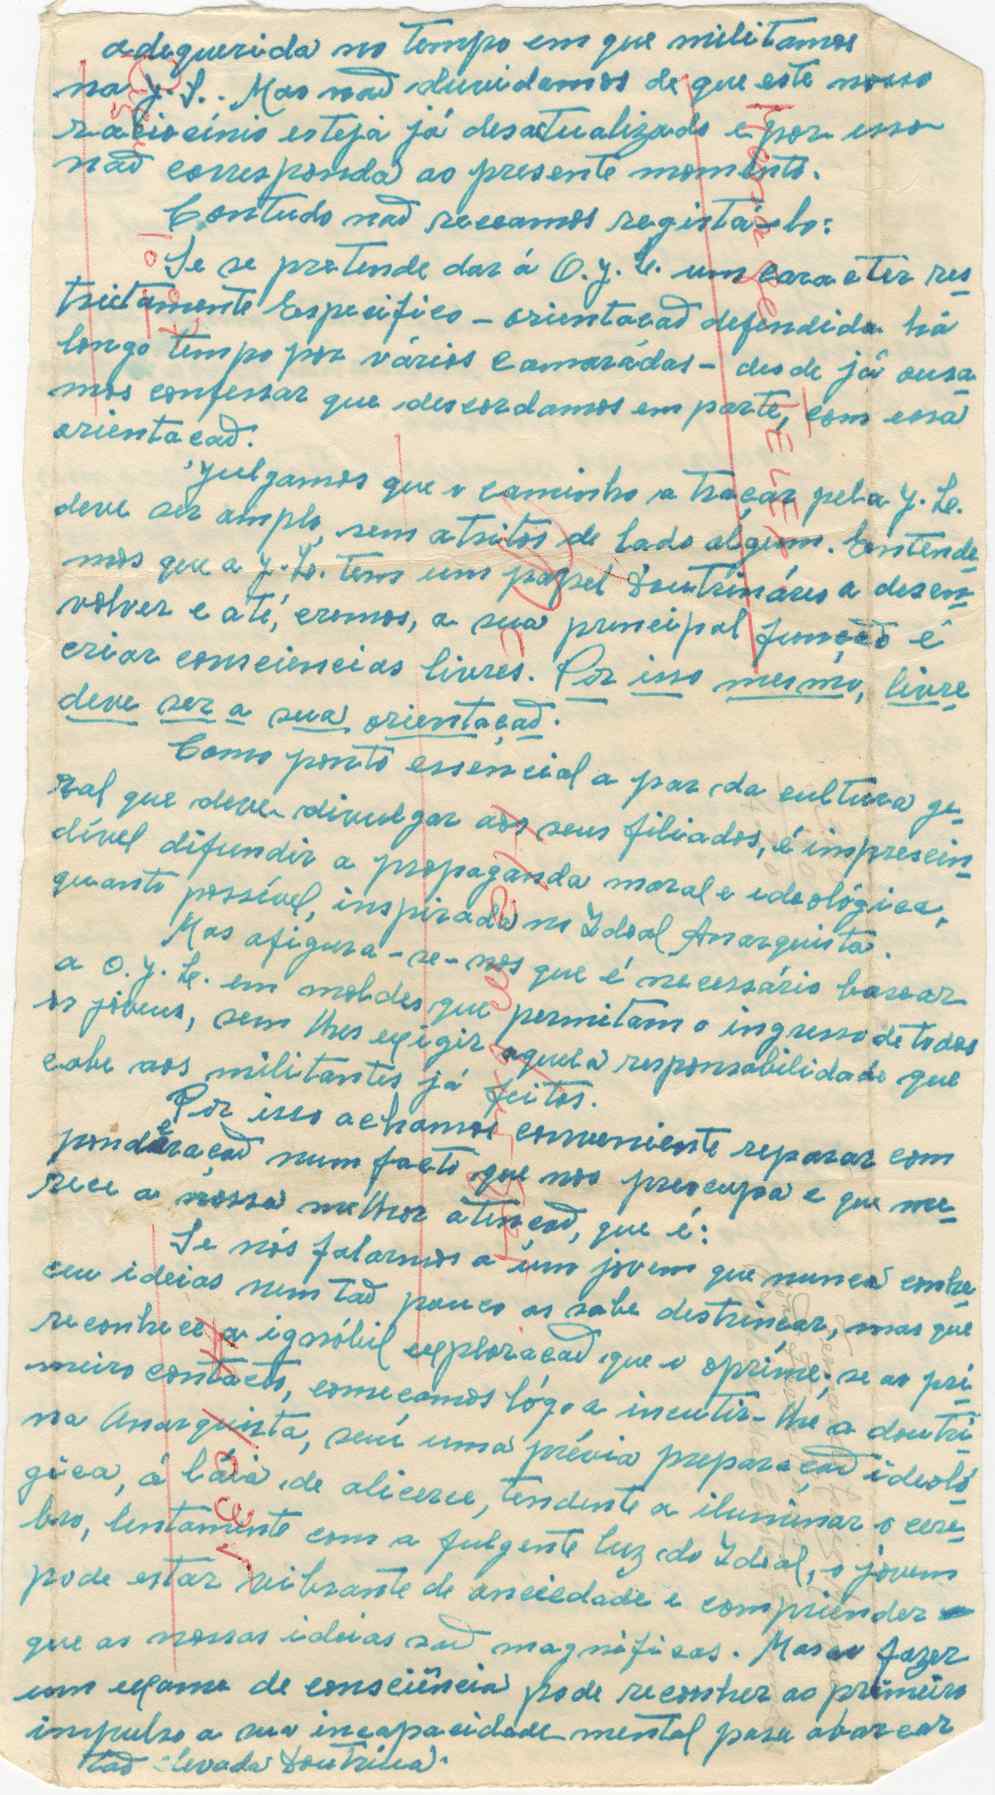 adequerida no tempo em que militamos
na J. L.. Mas naõ duvidamos de que este nosso
raciocínio esteja já desactualizado e por isso
naõ corresponda ao presente momento.
Contudo naõ receamos registá-lo:
Se se pretende dar á O. J. L. um caracter res-
trictamente Especifico - orientacaõ defendida há
longo tempo por vários camarádas - desde já ousa-
mos confessar que descordamos em parte, com essa
orientacaõ.
Julgamos que o caminho a traçar pela J. L.
deve ser amplo, sem atritos de lado algum. Entende-
mos que a J. L. tem um papel Doutrinário a desen-
volver e até, cremos, a sua principal função é
criar consciencias livres. Por isso mesmo, livre
deve ser a sua orientaçaõ.
Como ponto essencial a par da cultura ge-
ral que deve divulgar aos seus filiados, é imprescin-
dível difundir a propaganda moral e ideológica,
quanto possível, inspirada no Ideal Anarquista.
Mas afigura-se-nos que é necessário basear
a O. J. L. em moldes que permitam o ingresso de todos
os jóvens, sem lhes exigir aquela responsabilidade que
cabe aos militantes já feitos.
Por isso achamos conveniente reparar com
ponderaçaõ num facto que nos preocupa e que me-
rece a nossa melhor atençaõ, que é:
Se nós falarmos a um jovem que nunca conhe-
ceu ideias nem taõ pouco as sabe destrinçar, mas que
reconhece a ignóbil exploracaõ que o oprime; se ao pri-
meiro contacto, comecamos lógo a incutir-lhe a doutri-
na Anarquista, sem uma prévia preparacaõ ideoló-
gica, á láia de alicerce, tendente a iluminar o cere-
bro, lentamente com a fulgente luz do Ideal, o jovem
pode estar vibrante de anciedade e compriender
que as nossas ideias saõ magnificas. Mas ao fazer
um exame de consciência pode reconher ao primeiro
impulso a sua incapacidade mental para abarcar
taõ elevada Doutrina.